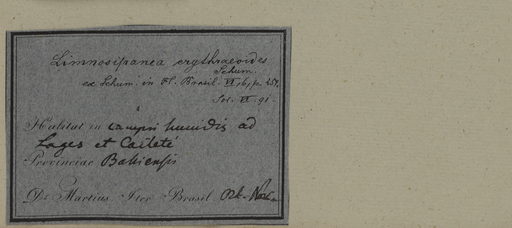 Limnosipanea erythraeoides
Schum.
ex Schum. in Fl. Brasil. VI, 6, p. 257.
VI. 91.
Habitat in campis humidis ad
Lages et Caiteté
Provinciae Bahiensis
Dr. Martius Iter Brasil. Oct. Nov.